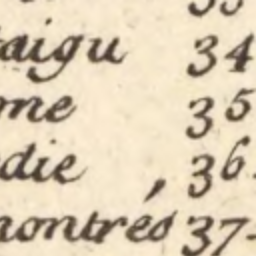 33
aigu 34
me 35
die , 36.
montrés 37-